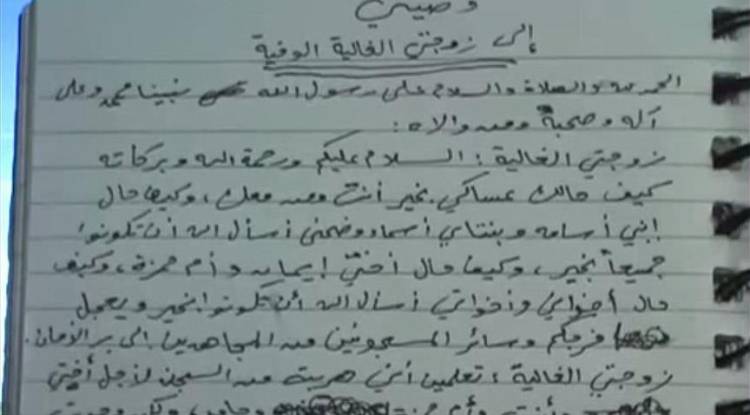 وصيتي
إلى زوجتي الغالية الوفية
الحمد لله والصلاة والسلام على رسول الله نبينا محمد وعلى
آله وصحبه ومن والاه :
زوجتي الغالية : السلام عليكم ورحمة الله وبركاته
كيف حالك عساكي بخير أنت ومن معك ، وكيف حال
إبني أسامه وبنتاي أسماء وضحى أسأل الله أن تكونوا
جميعاً بخير ، وكيف حال أختي إيمان وأم حمزة ، وكيف
حال أخواي وأخواتي أسأل الله أن تكونوا بخير ويعجل
فرجكم وسائر المسجونين من المجاهدين إلى بر الأمان .
زوجتي الغالية ، تعلمين أنني هربت من السجن لأجل أختي